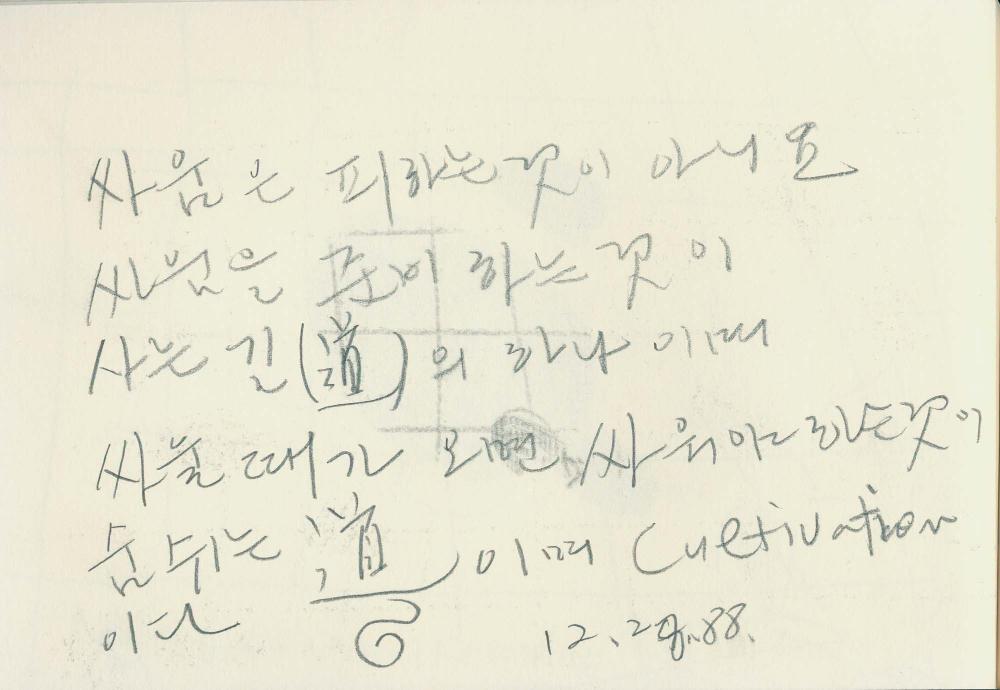 싸움은 피하는것이 아니요
싸움을 준비하는것이
사는길(道)의 하나이며
싸울때가 오면 싸워야 하는것이
숨쉬는 道이며 Cultivation
이다
12.29.88.